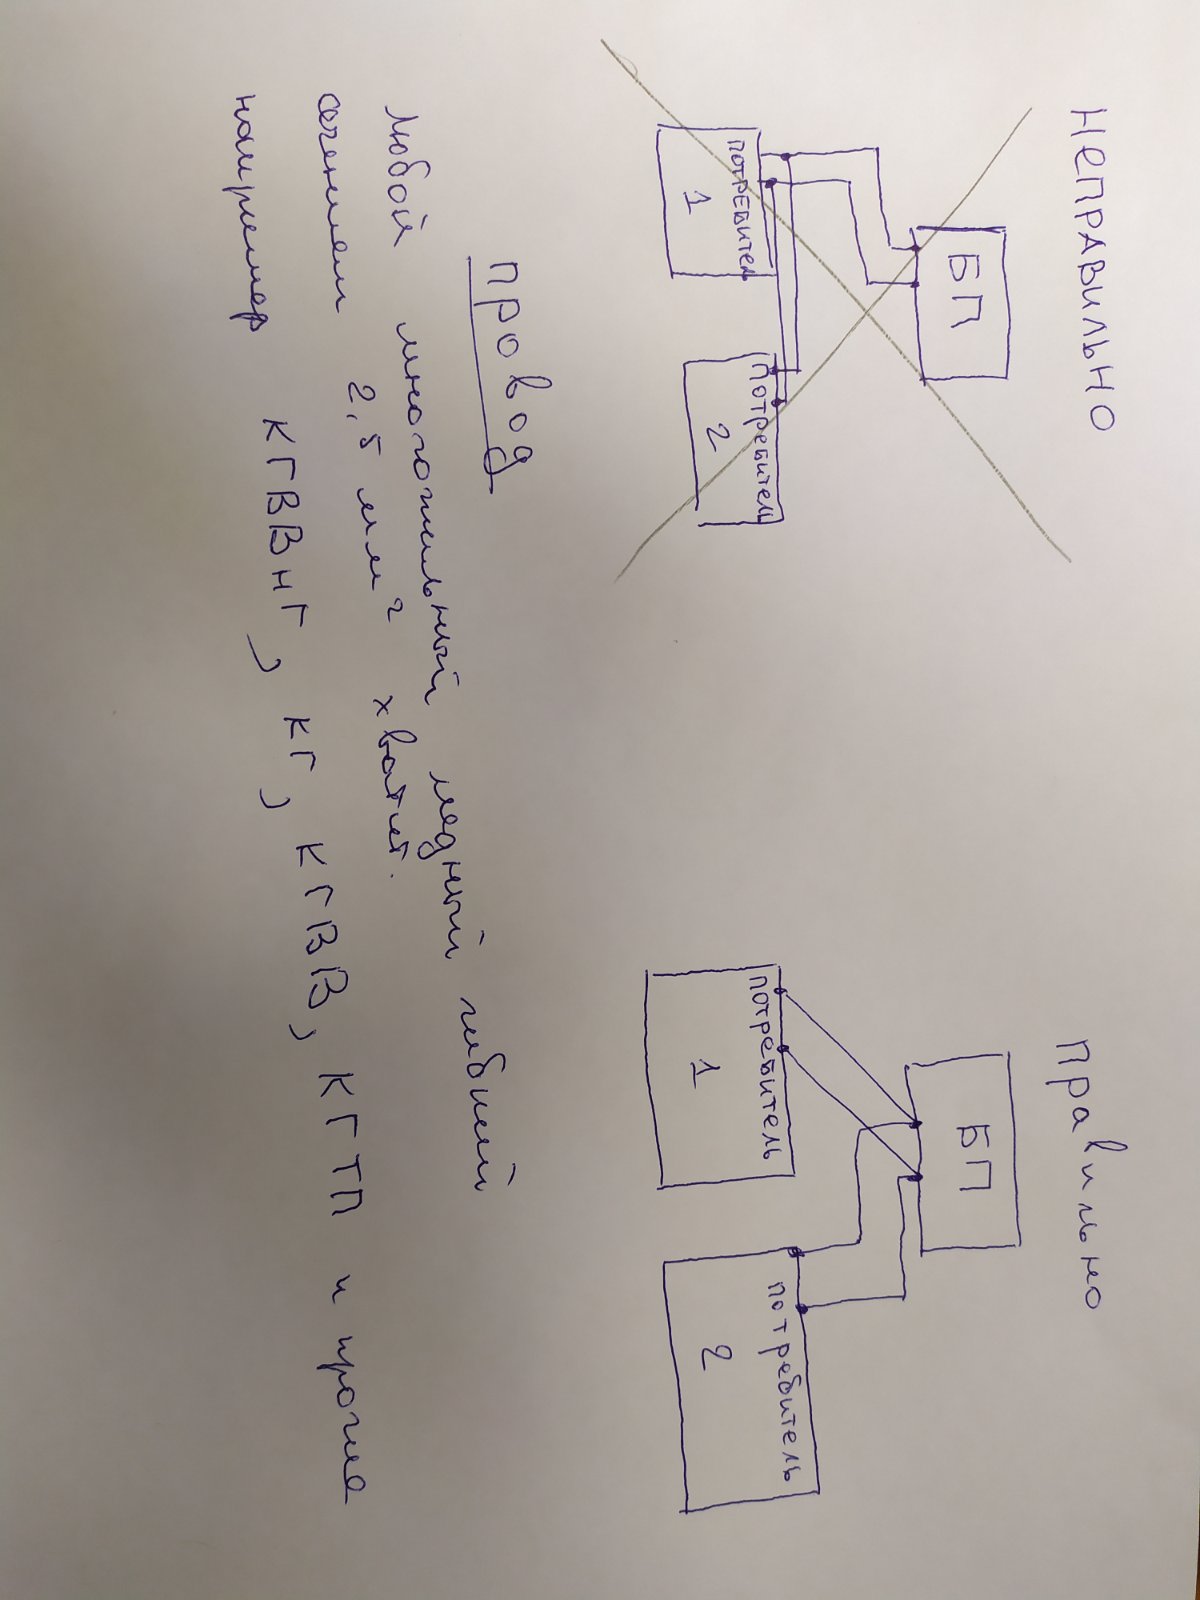 НЕПРАВИЛЬНО
БП
ПОТРЕБИТЕЛЬ
1
ПОТРЕБИТЕЛЬ
2
ПРАВИЛЬНО
БП
ПОТРЕБИТЕЛЬ
1
ПОТРЕБИТЕЛЬ
2
ПРОВОД
Любой многожильный медный гибкий
сечением 2,5 мм² хватит.
например КГВВнГ, КГ, КГВВ, КГТП и прочие